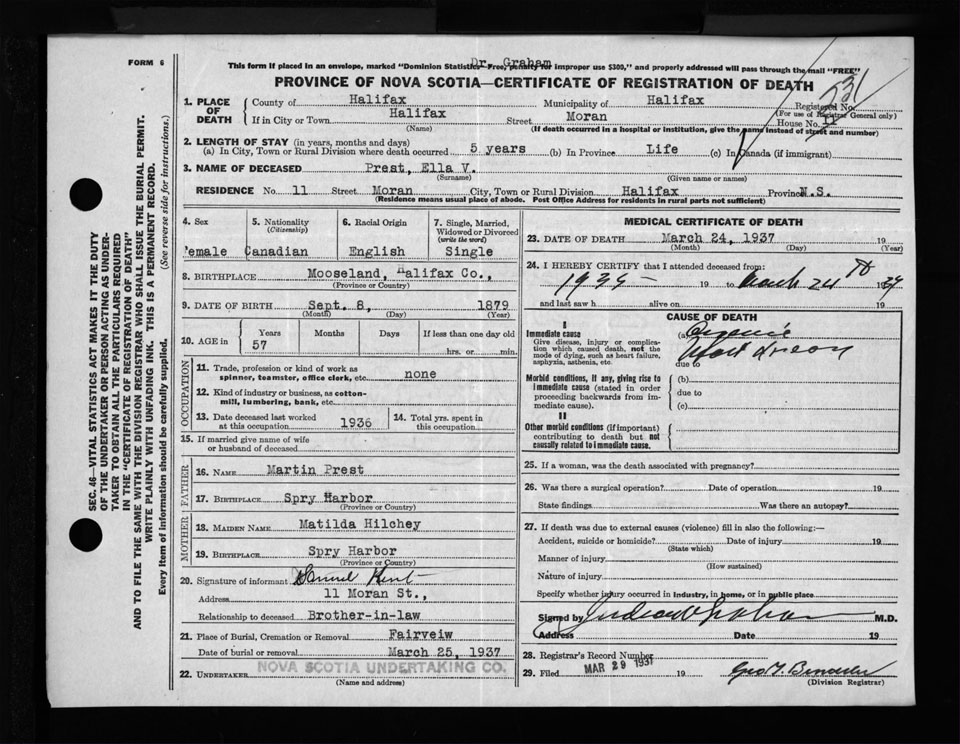 FORM 6
Dr. Graham
This form if placed in an envelope, marked "Dominion Statistics—Free, penalty for improper use $300," and properly addressed will pass through the mail "FREE"
PROVINCE OF NOVA SCOTIA—CERTIFICATE OF REGISTRATION OF DEATH
1. PLACE OF DEATH
County of Halifax Municipality of Halifax Registered No.
(For use of Registrar General only)
If in City or Town Halifax Street Moran House No. 11
(Name) (If death occurred in a hospital or institution, give the name instead of street and number)
2. LENGTH OF STAY (in years, months and days)
(a) In City, Town or Rural Division where death occurred 5 years (b) In Province Life (c) In Canada (if immigrant)
3. NAME OF DECEASED Prest, Ella V.
(Surname) (Given name or names)
RESIDENCE No. 11 Street Moran City, Town or Rural Division Halifax Province N.S.
(Residence means usual place of abode. Post Office Address for residents in rural parts not sufficient)
4. Sex 5. Nationality (Citizenship) 6. Racial Origin 7. Single, Married, Widowed or Divorced (write the word)
Female Canadian English Single
8. BIRTHPLACE Mooseland, Halifax Co.,
(Province or Country)
9. DATE OF BIRTH Sept. 8, 1879
(Month) (Day) (Year)
10. AGE in Years Months Days If less than one day old
57 hrs. or min.
OCCUPATION
11. Trade, profession or kind of work as spinner, teamster, office clerk, etc. none
12. Kind of industry or business, as cotton-mill, lumbering, bank, etc.
13. Date deceased last worked at this occupation 1936 14. Total yrs. spent in this occupation
15. If married give name of wife or husband of deceased
FATHER
16. NAME Martin Prest
17. BIRTHPLACE Spry Harbor
(Province or Country)
MOTHER
18. MAIDEN NAME Matilda Hilchey
19. BIRTHPLACE Spry Harbor
(Province or Country)
20. Signature of informant Samuel Kent
Address 11 Moran St.,
Relationship to deceased Brother-in-law
21. Place of Burial, Cremation or Removal Fairveiw
Date of burial or removal March 25, 1937
22. UNDERTAKER NOVA SCOTIA UNDERTAKING CO.
(Name and address)
MEDICAL CERTIFICATE OF DEATH
23. DATE OF DEATH March 24, 1937 19
(Month) (Day) (Year)
24. I HEREBY CERTIFY that I attended deceased from:
19 to March 24 1937
and last saw h alive on 19
CAUSE OF DEATH
I
Immediate cause (a) Organic
Give disease, injury or complication which caused death, not the mode of dying, such as heart failure, asphyxia, asthenia, etc.
due to
Morbid conditions, if any, giving rise to immediate cause (stated in order proceeding backwards from immediate cause).
(b)
due to
(c)
II
Other morbid conditions (if important) contributing to death but not causally related to immediate cause.
25. If a woman, was the death associated with pregnancy?
26. Was there a surgical operation? Date of operation 19
State findings Was there an autopsy?
27. If death was due to external causes (violence) fill in also the following:—
Accident, suicide or homicide? Date of injury 19
(State which)
Manner of injury
(How sustained)
Nature of injury
Specify whether injury occurred in industry, in home, or in public place
Signed by M.D.
Address Date 19
28. Registrar's Record Number
29. Filed MAR 29 1937 19
(Division Registrar)
SEC. 46—VITAL STATISTICS ACT MAKES IT THE DUTY
OF THE UNDERTAKER OR PERSON ACTING AS UNDER-
TAKER TO OBTAIN ALL THE PARTICULARS REQUIRED
IN THE "CERTIFICATE OF REGISTRATION OF DEATH"
AND TO FILE THE SAME WITH THE DIVISION REGISTRAR WHO SHALL ISSUE THE BURIAL PERMIT.
WRITE PLAINLY WITH UNFADING INK. THIS IS A PERMANENT RECORD.
Every item of information should be carefully supplied. (See reverse side for instructions.)